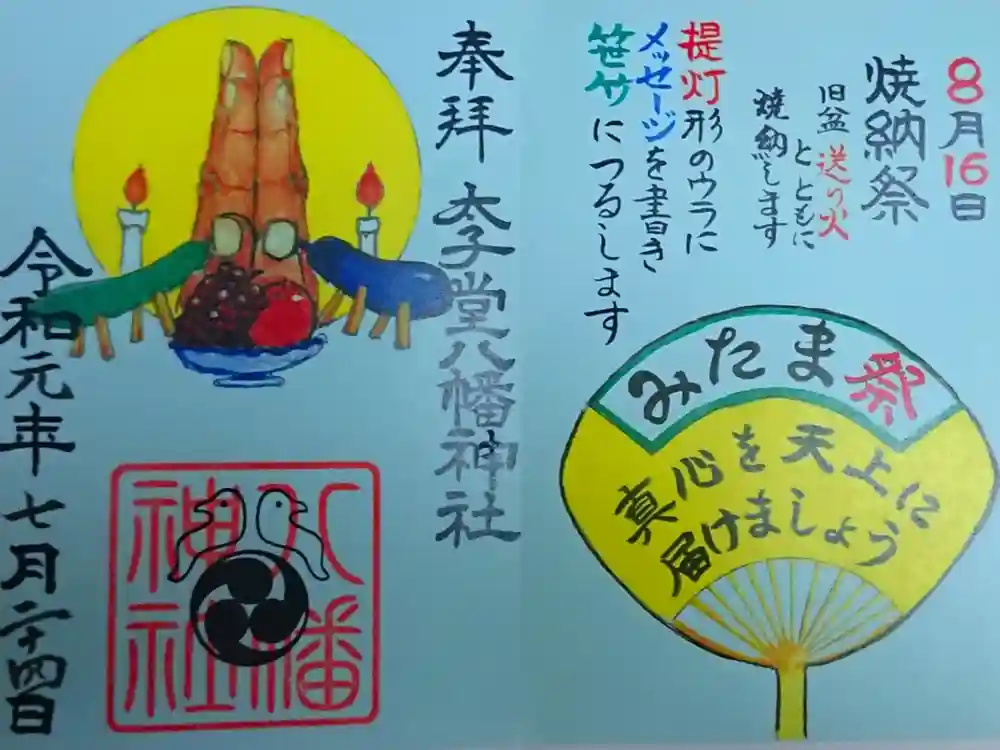 8月16日
焼納祭
旧盆送り火
とともに
焼納します
提灯形のウラに
メッセージを書き
笹竹につるします
みたま祭
真心を天上に
届けましょう
奉拝
太子堂八幡神社
令和元年七月二十四日
八幡
神社